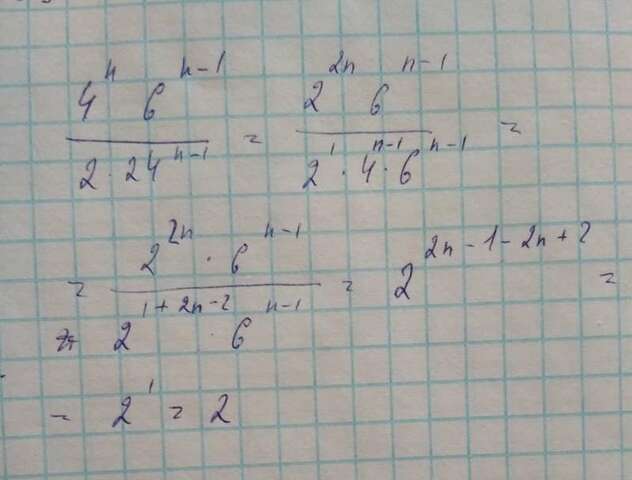 4^n 6^{n-1} / 2 · 24^{n-1} = 2^{2n} 6^{n-1} / 2^1 · 4^{n-1} · 6^{n-1} =
= 2^{2n} · 6^{n-1} / 2^{1+2n-2} · 6^{n-1} = 2^{2n-1-2n+2} =
= 2^1 = 2